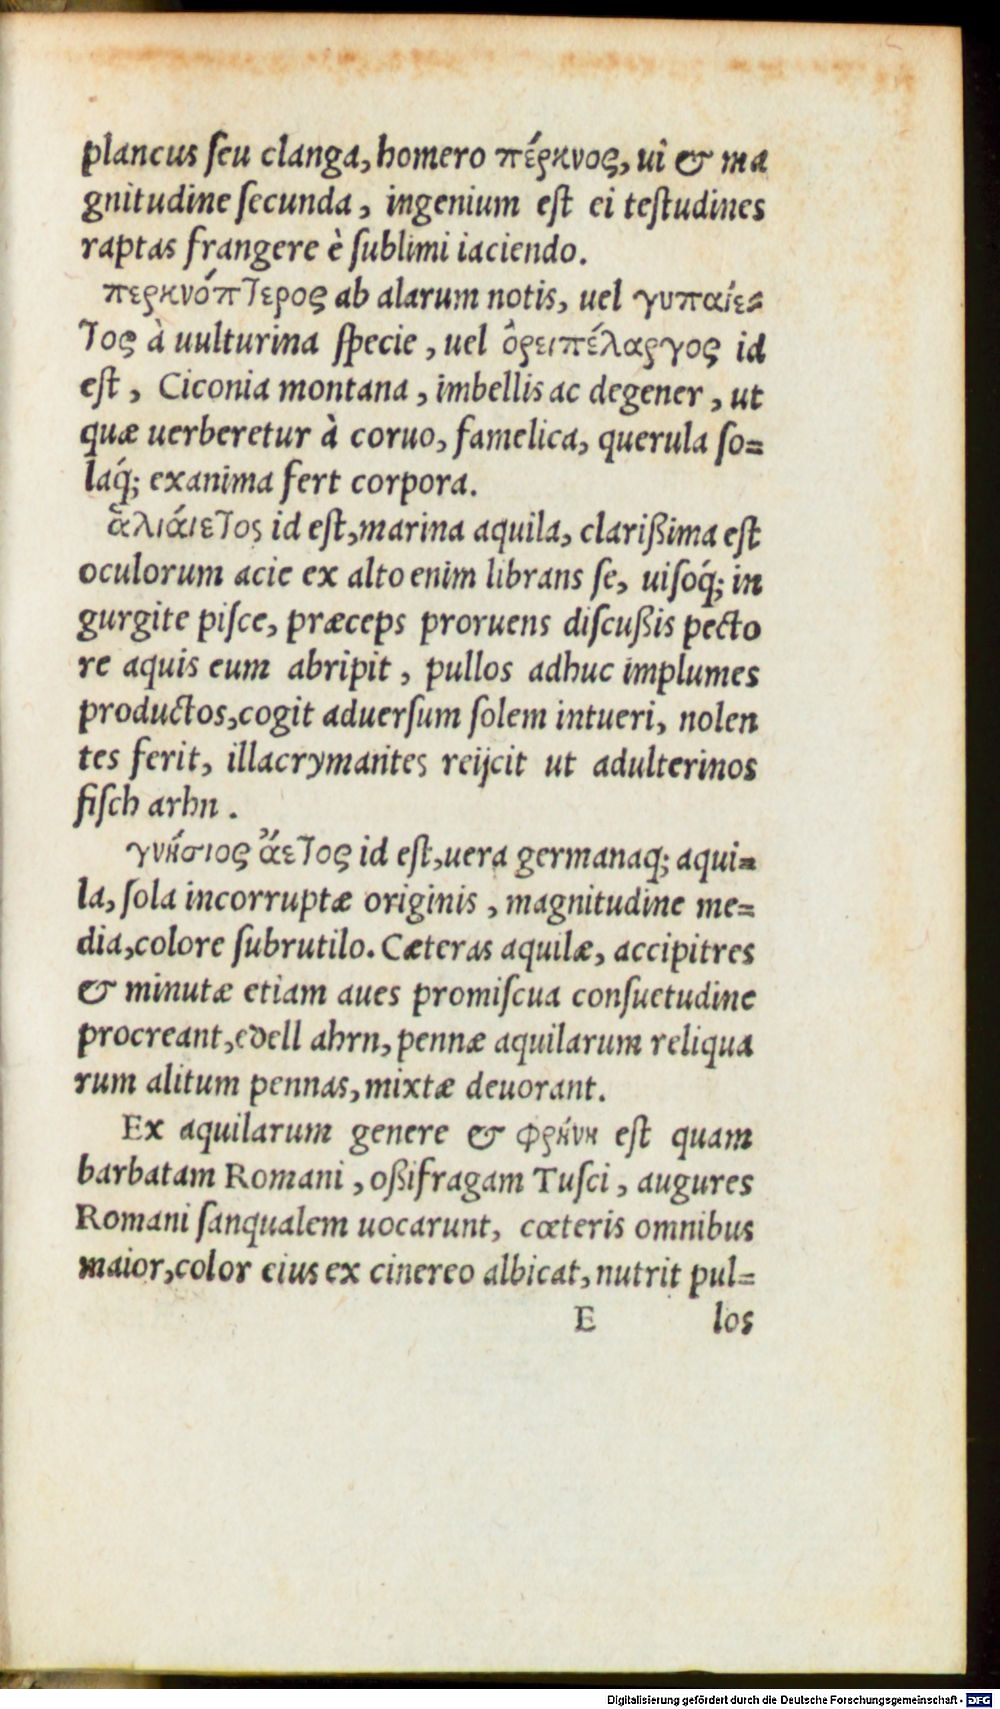 plancus ſeu clanga, homero πέρκνος, ui & ma
gnitudine ſecunda, ingenium eſt ei teſtudines
raptas frangere è ſublimi iaciendo.
περκνόπτερος ab alarum notis, uel γυπαίε=
τος à uulturina ſpecie, uel ὀρειπέλαργος id
eſt, Ciconia montana, imbellis ac degener, ut
quæ uerberetur à coruo, famelica, querula ſo=
laq́; exanima fert corpora.
ἁλιάιετος id eſt, marina aquila, clarißima eſt
oculorum acie ex alto enim librans ſe, uiſoq́; in
gurgite piſce, præceps proruens diſcußis pecto
re aquis eum abripit, pullos adhuc implumes
productos, cogit aduerſum ſolem intueri, nolen
tes ferit, illacrymantes reijcit ut adulterinos
fiſch arhn.
γνήσιος ἄετος id eſt, uera germanaq; aqui=
la, ſola incorruptæ originis, magnitudine me=
dia, colore ſubrutilo. Cæteras aquilæ, accipitres
& minutæ etiam aues promiſcua conſuetudine
procreant, edell ahrn, pennæ aquilarum reliqua
rum alitum pennas, mixtæ deuorant.
Ex aquilarum genere & φρήνη eſt quam
barbatam Romani, oßifragam Tuſci, augures
Romani ſanqualem uocarunt, cœteris omnibus
maior, color eius ex cinereo albicat, nutrit pul=
E los
Digitalisierung gefördert durch die Deutsche Forschungsgemeinschaft - DFG